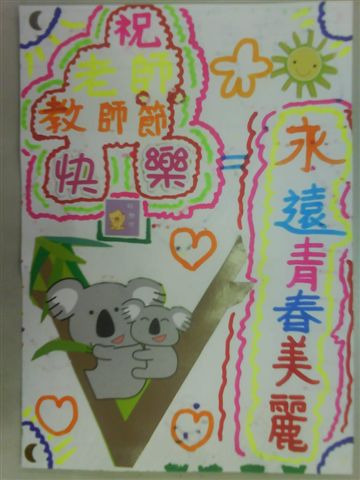 祝
老師
教師節
快樂
永遠青春美麗